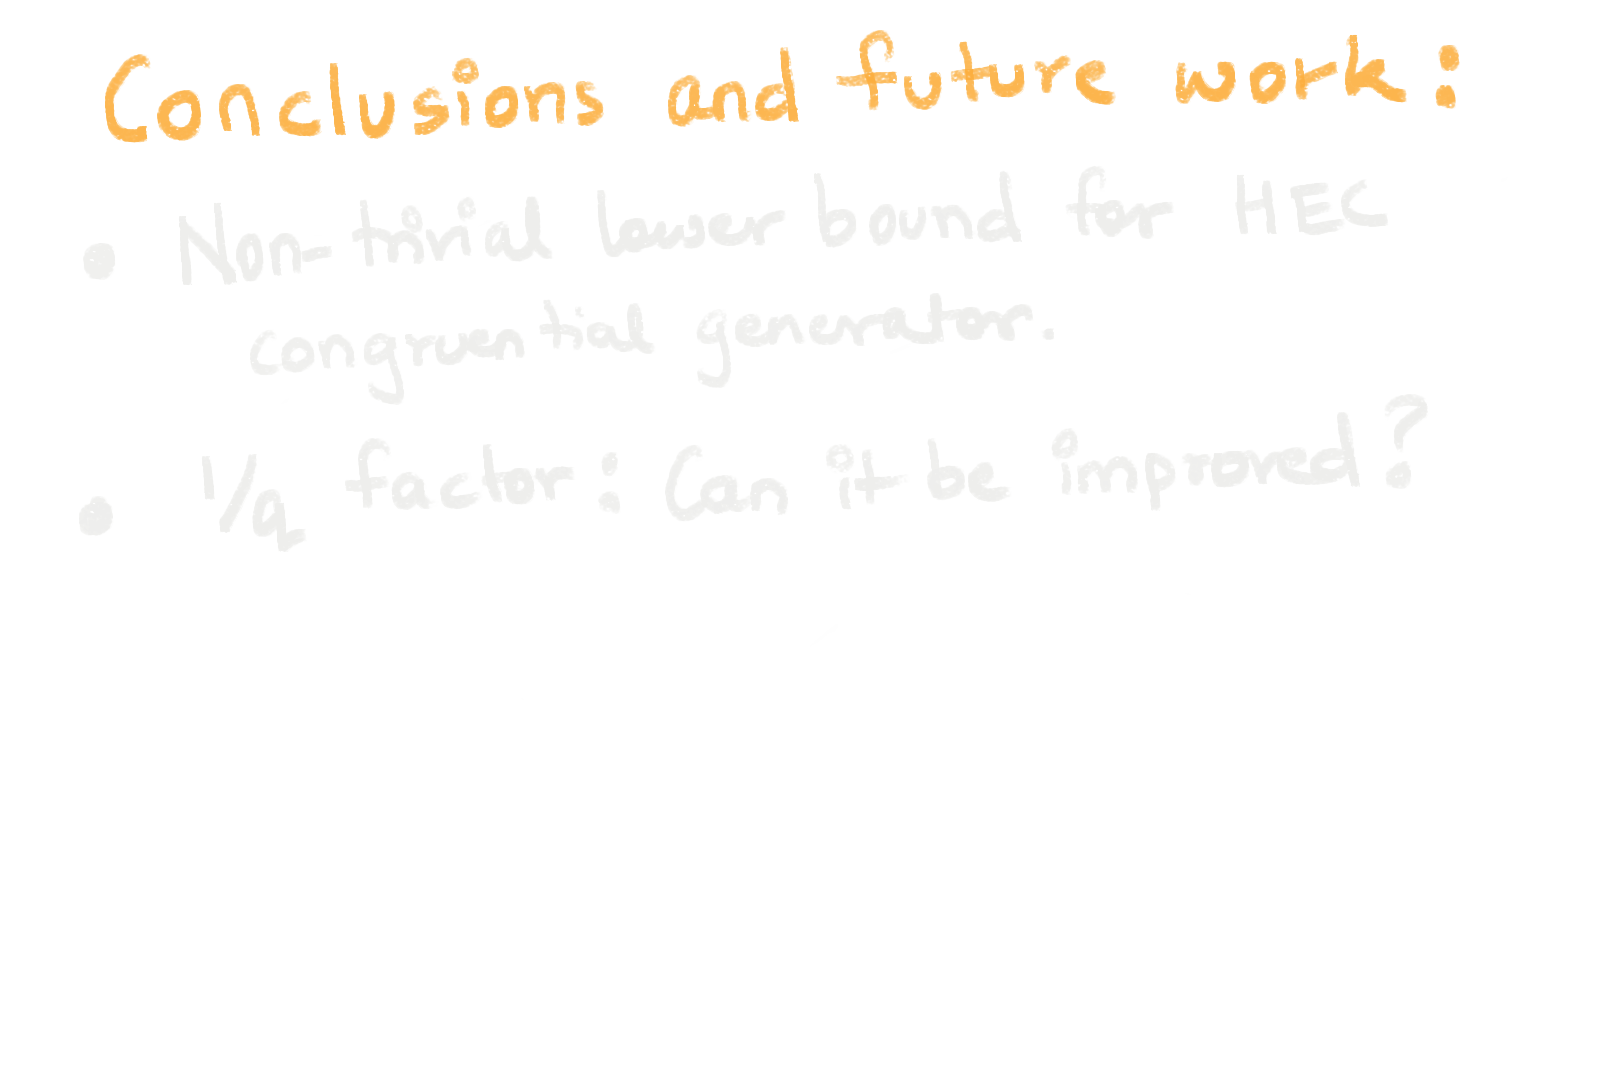 Conclusions and future work:
• Non-trivial lower bound for HEC
congruential generator.
• 1/q factor: Can it be improved?